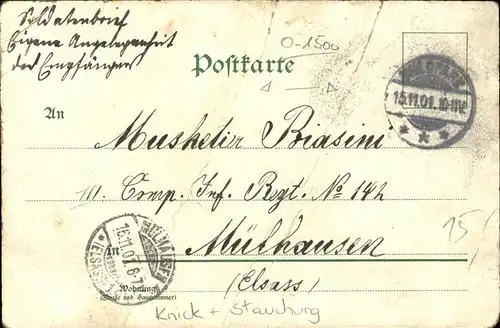 Soldatenbrief
Eigene Angelegenheit
des Empfängers
0-1500
Postkarte
15.11.01.
An
Musketier Biasini
III. Comp. Inf. Regt. No 142
in Mülhausen
(Elsass)
MÜLHAUSEN
16.11.01. 6-7
(ELSASS)
Wohnung
(Straße und Hausnummer)
15
Knick + Stauchung